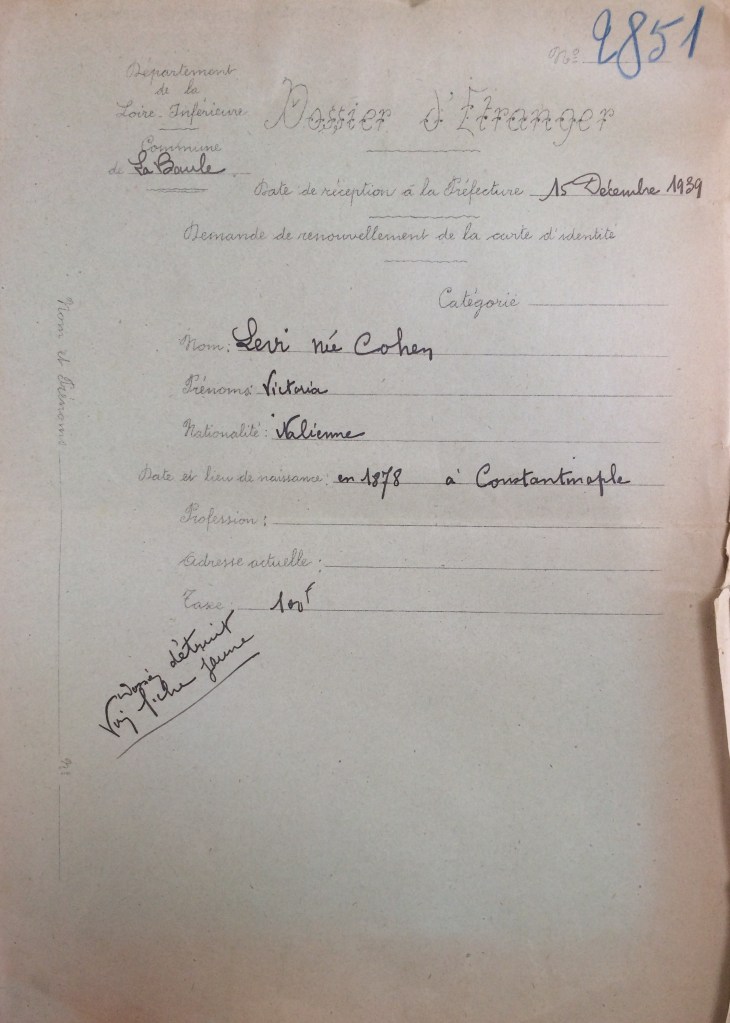 Nº 2851
Département
de la
Loire-Inférieure
Dossier d'Étranger
Commune
de La Baule
Date de réception à la Préfecture 15 Décembre 1939
Demande de renouvellement de la carte d'identité
Catégorie
Nom: Levi née Cohen
Prénoms: Victoria
Nationalité: Italienne
Date et lieu de naissance: en 1878 à Constantinople
Profession:
Adresse actuelle:
Taxe 100f
Dossier détruit
Voir fiche jaune
Nom et Prénoms
Nº